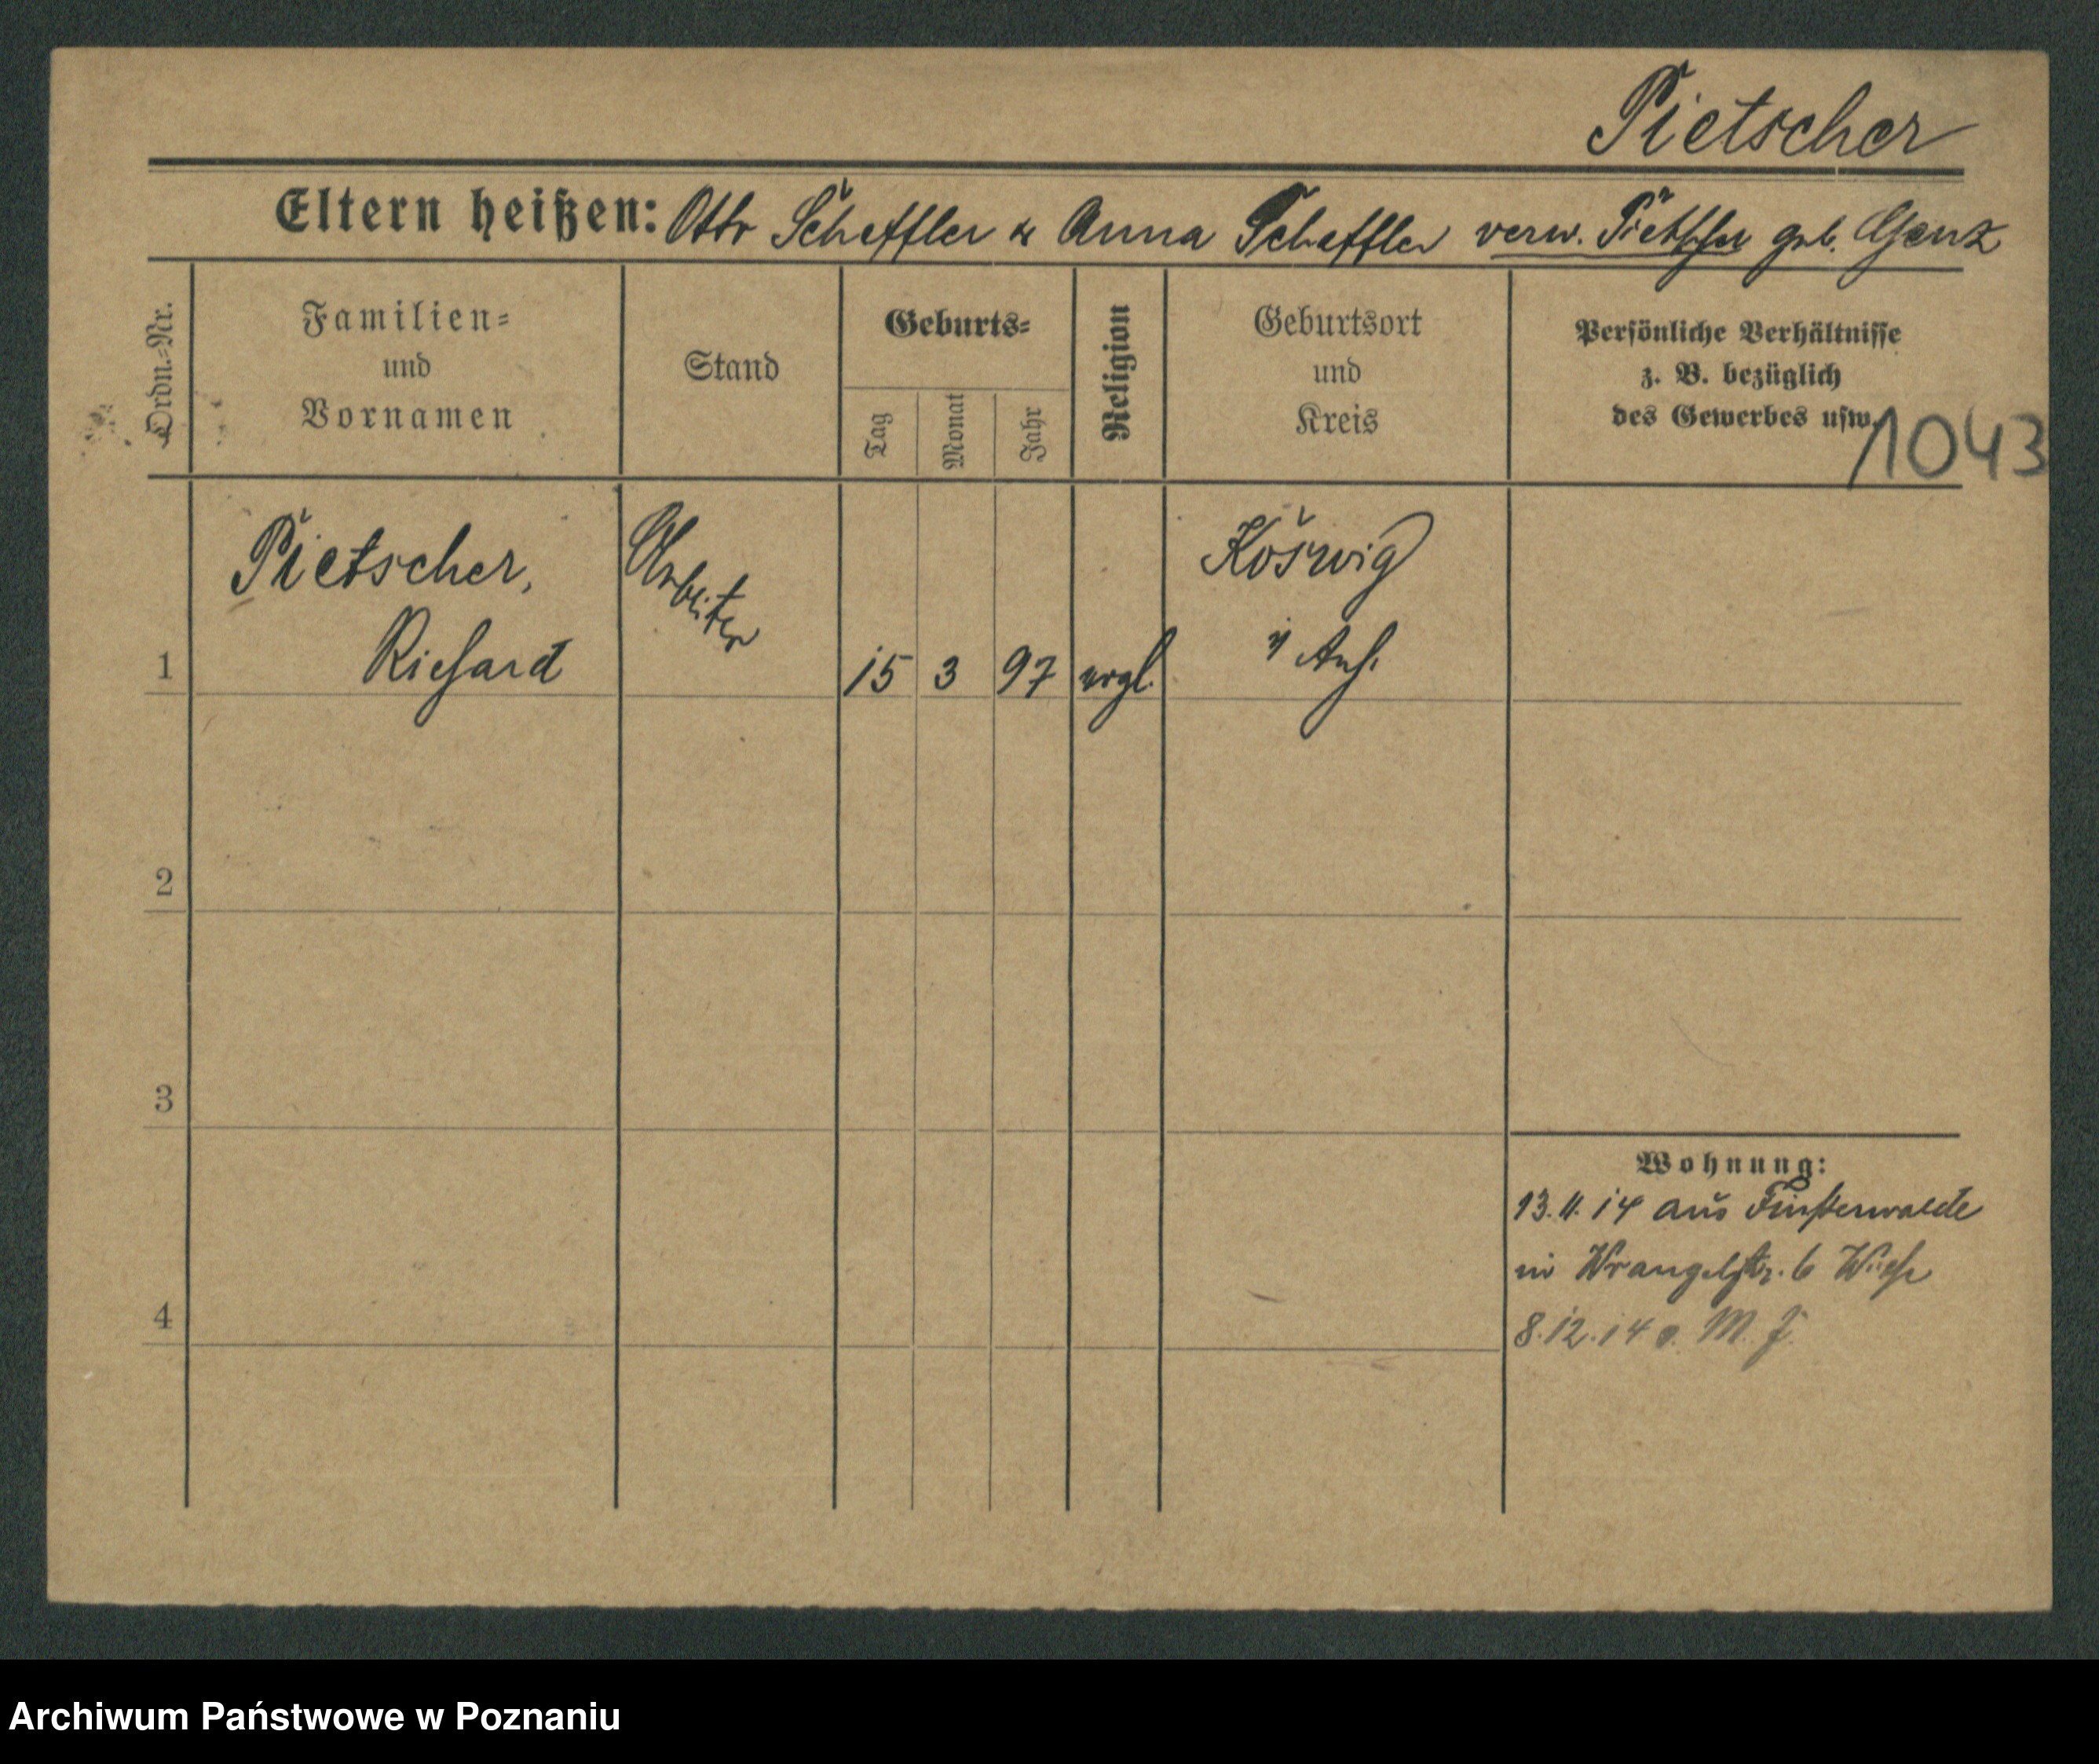 Pietscher
Eltern heißen: Otto Scheffler & Anna Scheffler verw. Pietscher geb. Genz
Ordn.=Nr.
Familien=
und
Vornamen
Stand
Geburts=
Tag
Monat
Jahr
Religion
Geburtsort
und
Kreis
Persönliche Verhältnisse
z. B. bezüglich
des Gewerbes usw.
1043
1
Pietscher,
Richard
Arbeiter
15
3
97
evgl.
Koswig
i/ Anh.
2
3
4
Wohnung:
13.11.14 aus Finsterwalde
in Wrangelstr. 6
8.12.14 M. J.
Archiwum Państwowe w Poznaniu